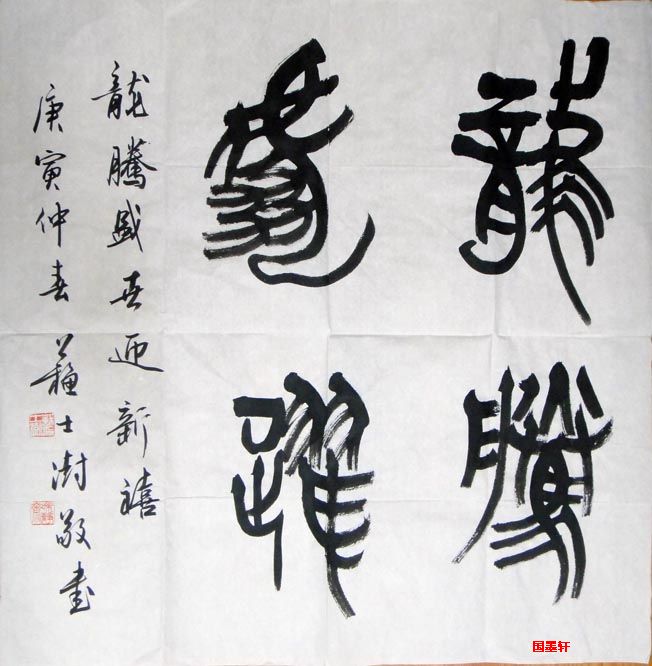 龍騰
虎躍
龍騰盛世迎新禧
庚寅仲春 蘇士澍敬書
国墨轩